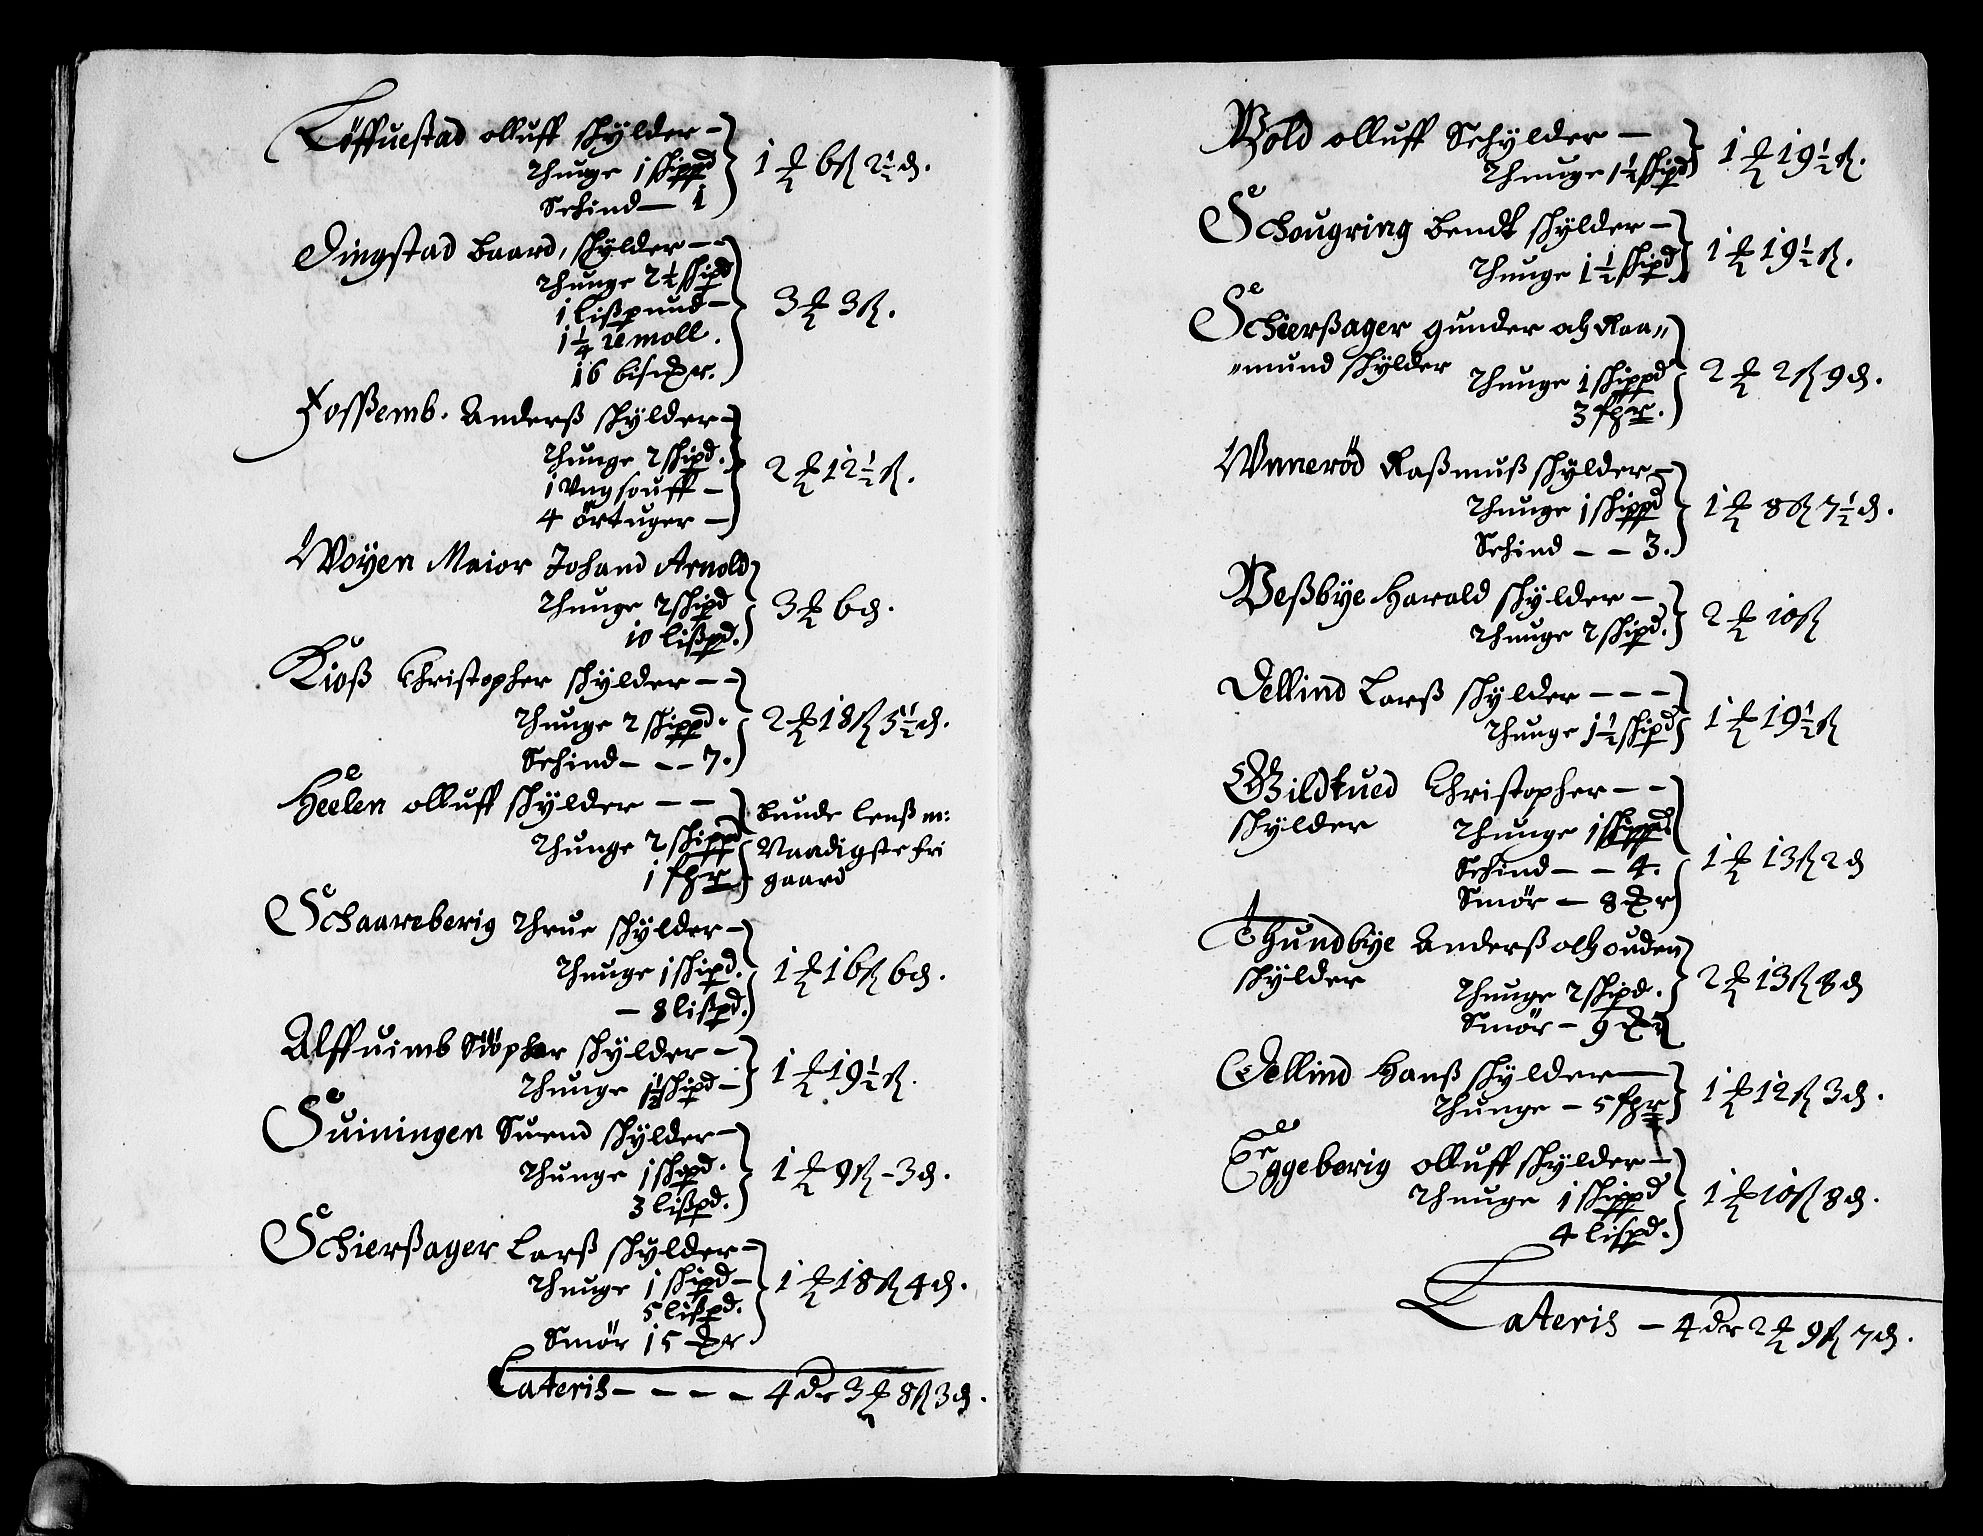 Tøffuestad olluff skylder –
Thunge 1 skippd
Schind — 1
1 ₰ 6 ß 2½ d.
Dingstad Baard, skylder – –
Thunge 2½ skipd
1 lißpund –
1¼ remoll.
16 bismr.
3 ₰ 3 ß.
Fosßemb. Anderß skylder –
Thunge 2 skipd.
1 Vngsouff –
4 örtuger –
2 ₰ 12½ ß.
Woyen Maior Johand Arnold
Thunge 2 skipd
10 lißpd.
3 ₰ 6 d.
Kioß Christopher skylder – –
Thunge 2 skippd.
Schind – – – 7.
2 ₰ 18 ß 5½ d.
Heelen olluff skylder – –
Thunge 2 skippd
1 fhr
bunde lenß m:
Vaadigste fri
gaard
Schaareberig Thrue skylder –
Thunge 1 skipd.
– 8 lißpd.
1 ₰ 16 ß 6 d.
Alffuimb skylder –
Thunge 1½ skipd –
1 ₰ 19½ ß.
Suiningen Suend skylder –
Thunge 1 skpd.
3 lißpd.
1 ₰ 9 ß – 3 d.
Schierßager Larß skylder –
Thunge 1 skipd –
5 lißpd.
Smör 15 mr
1 ₰ 18 ß 4 d.
Lateris – – – – 4 dr 3 ₰ 8 ß 3 d.
Vold olluff Schylder —
Thunge 1½ skipd
1 ₰ 19½ ß.
Schougring bendt skylder –
Thunge 1½ skipd
1 ₰ 19½ ß.
Schierßager gunder och Raa„
„mund skylder
Thunge 1 skippd
3 fhr.
2 ₰ 2 ß 9 d.
Wnnerød Raßmuß skylder –
Thunge 1 skippd
Schind – – 3.
1 ₰ 8 ß 7½ d.
Veßbye Harald skylder –
Thunge 2 skipd.
2 ₰ 10 ß
Dellind Larß skylder – – –
Thunge 1½ skipd
1 ₰ 19½ ß
Wildtued Christopher – –
skylder
Thunge 1 skippd
Schind – – 4.
Smör – 8 mr
1 ₰ 13 ß 2 d
Thundbye Anderß och ouden
skylder
Thunge 2 skipd.
Smör – 9 mr
2 ₰ 13 ß 8 d
Dellind Hanß skylder —
Thunge – 5 fhr
1 ₰ 12 ß 3 d.
Eggeberig olluff skylder –
Thunge 1 skippd
4 lispd.
1 ₰ 10 ß 8 d.
Lateris – 4 dr 2 ₰ 9 ß 7 d.